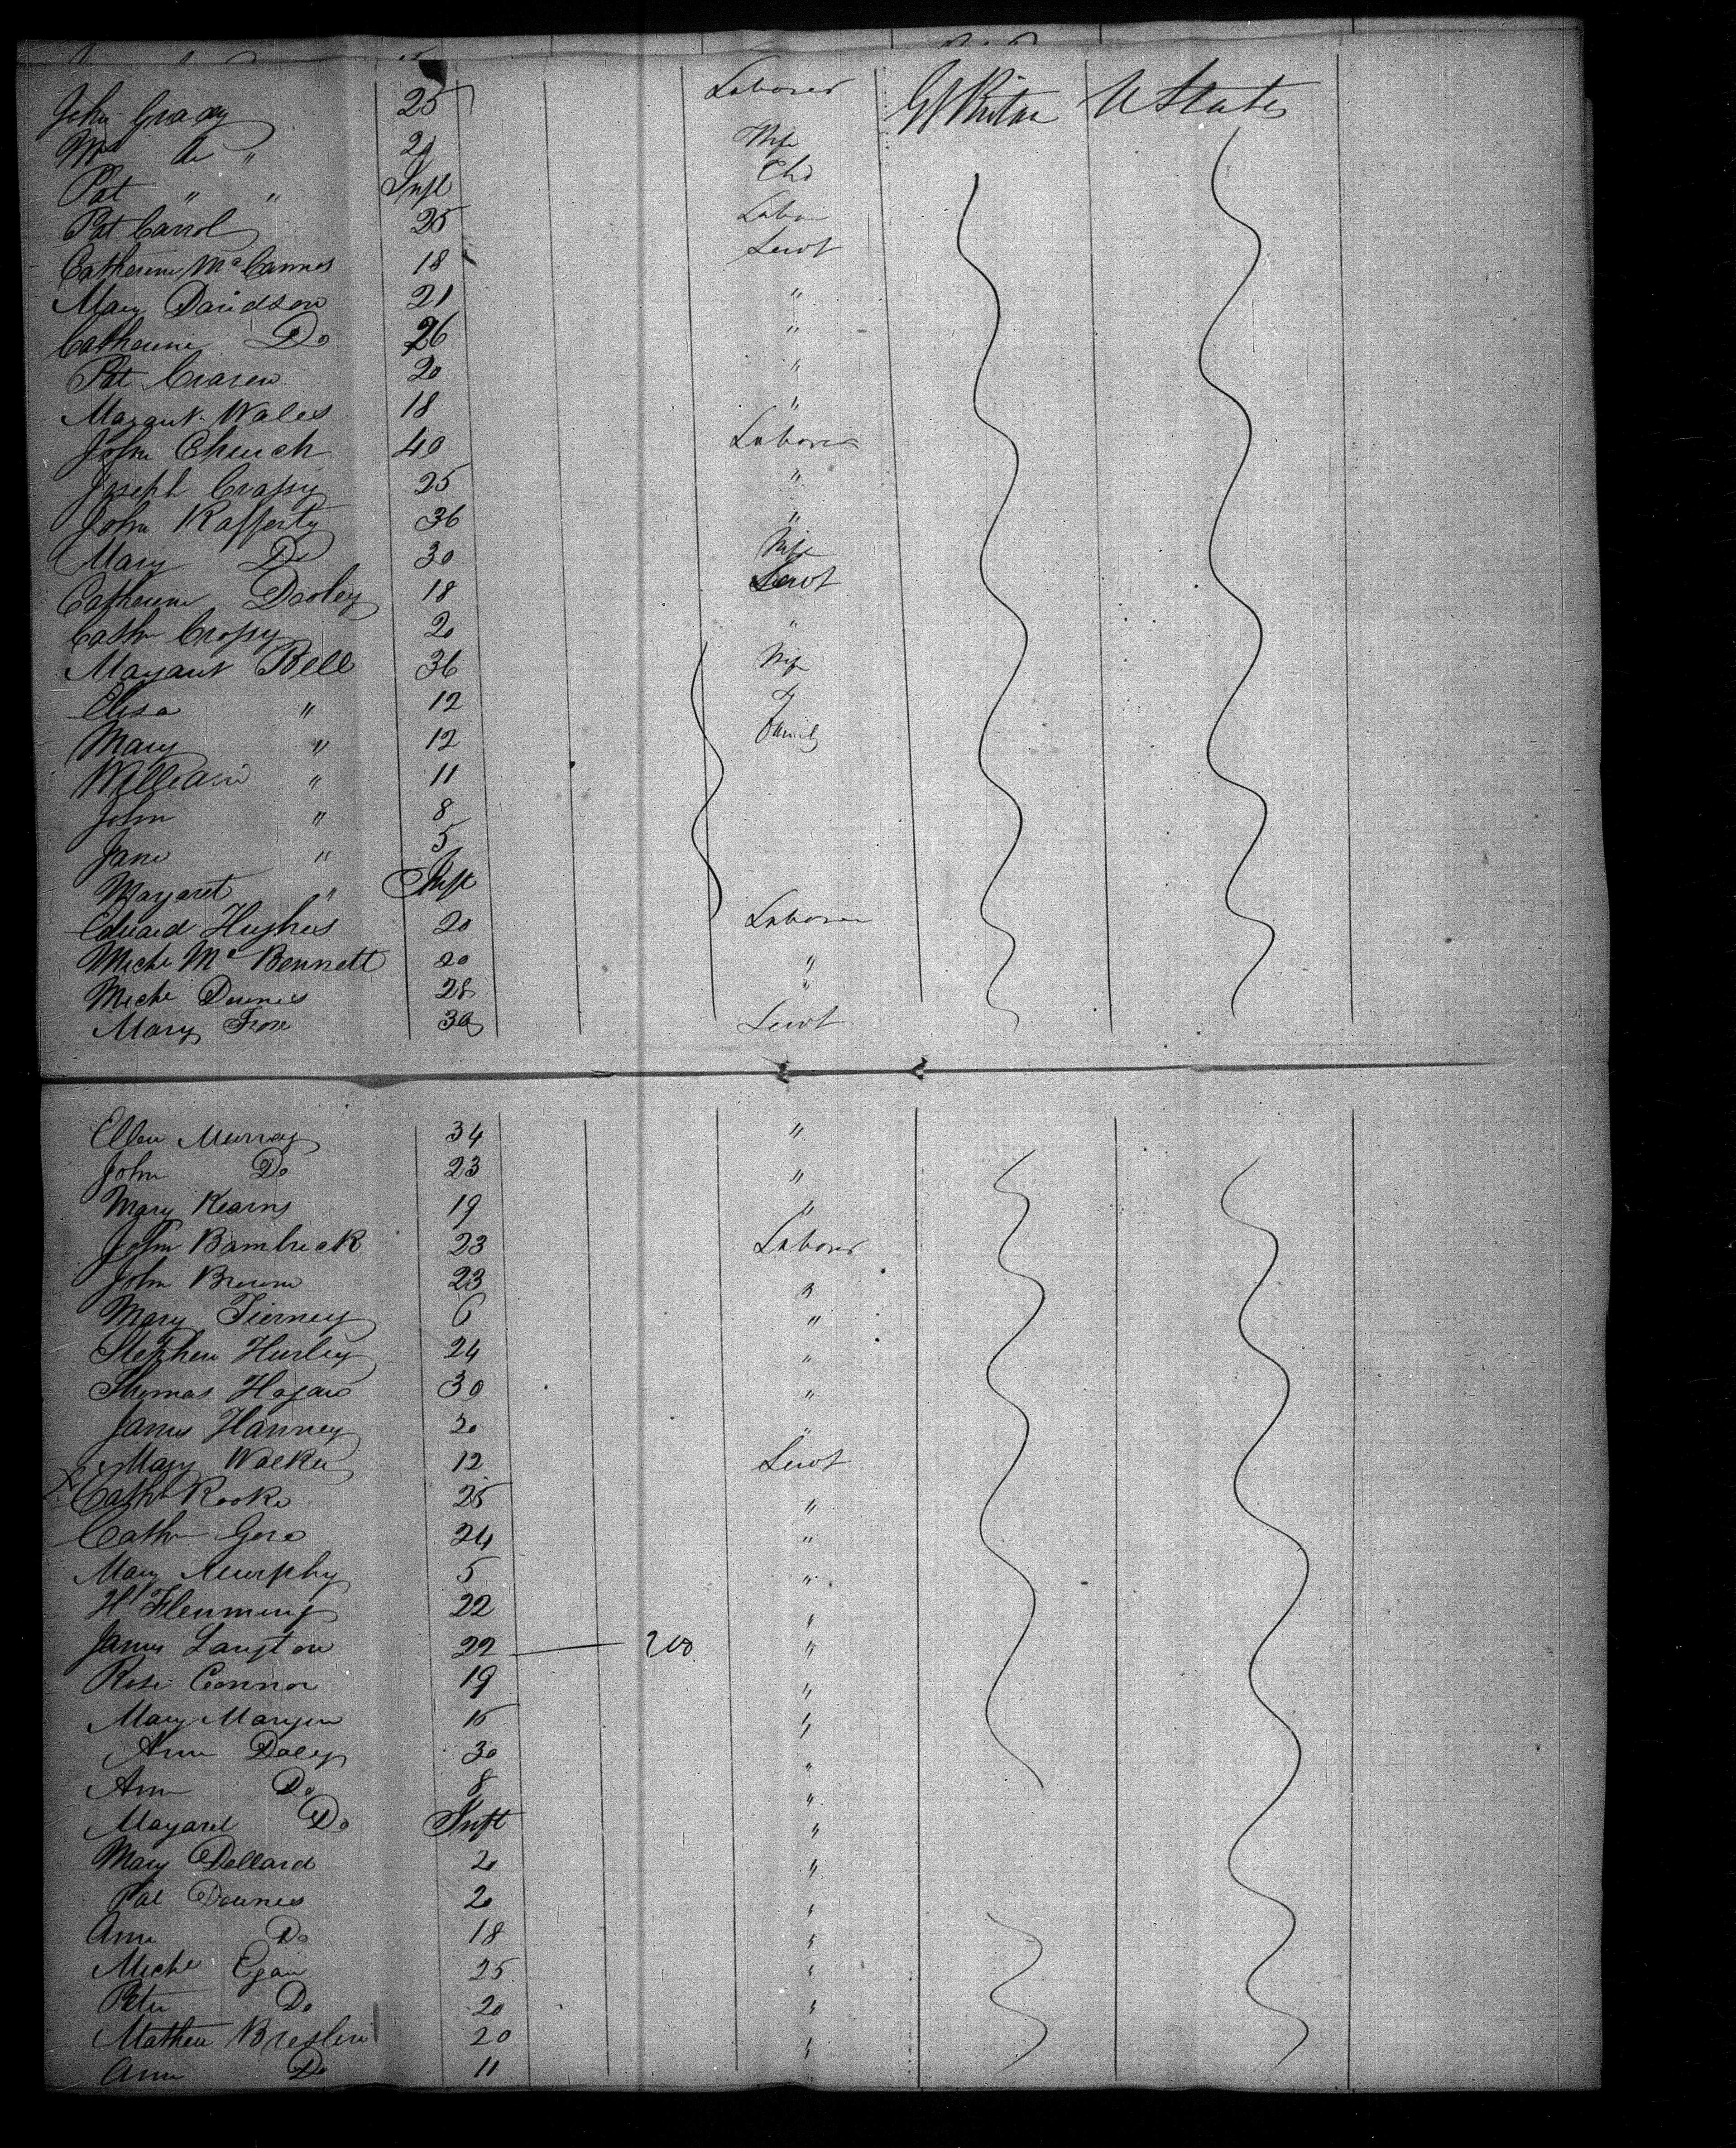 John Grady 25 Laborer Gt Britan U States
Mrs A " 20 Wife
Pat " " Inft Chd
Pat Carrol 25 Labor
Catherine McCannes 18 Servt
Mary Davidson 21 "
Catherine Do 26 "
Pat Craven 20 "
Margaret Wales 18 "
John Church 40 Laborer
Joseph Crapsy 25 "
John Rafferty 36 "
Mary Do 30 Wife
Catherine Dooley 18 Servt
Cathn Cropsy 20 "
Margaret Bell 36 Wife
Elisa " 12 &
Mary " 12 Family
William " 11
John " 8
Jane " 5
Margaret " Inft
Edward Hughes 20 Laborer
Michl McBennett 20 "
Michl Downes 28 "
Mary 30 Servt
Ellen Murray 34 "
John Do 23 "
Mary Kearns 19 "
John Bambrick 23 Laborer
John Brown 23 "
Mary Tierney 6 "
Stephen Hurley 24 "
Thomas Hogan 30 "
James Hanney 20 "
Mary Walker 12 Servt
X Cathn Rooke 25 "
Cathn Gore 24 "
Mary Murphy 5 "
H Flemming 22 "
James Langton 22 "
Rose Connor 19 "
Mary 15 "
Ann Daley 30 "
Ann Do 8 "
Margaret Do Inft "
Mary Dellard 20 "
Pat Downes 20 "
Ann Do 18 "
Michl Egan 25 "
Peter Do 20 "
Mathew Breslin 20 "
Ann Do 11